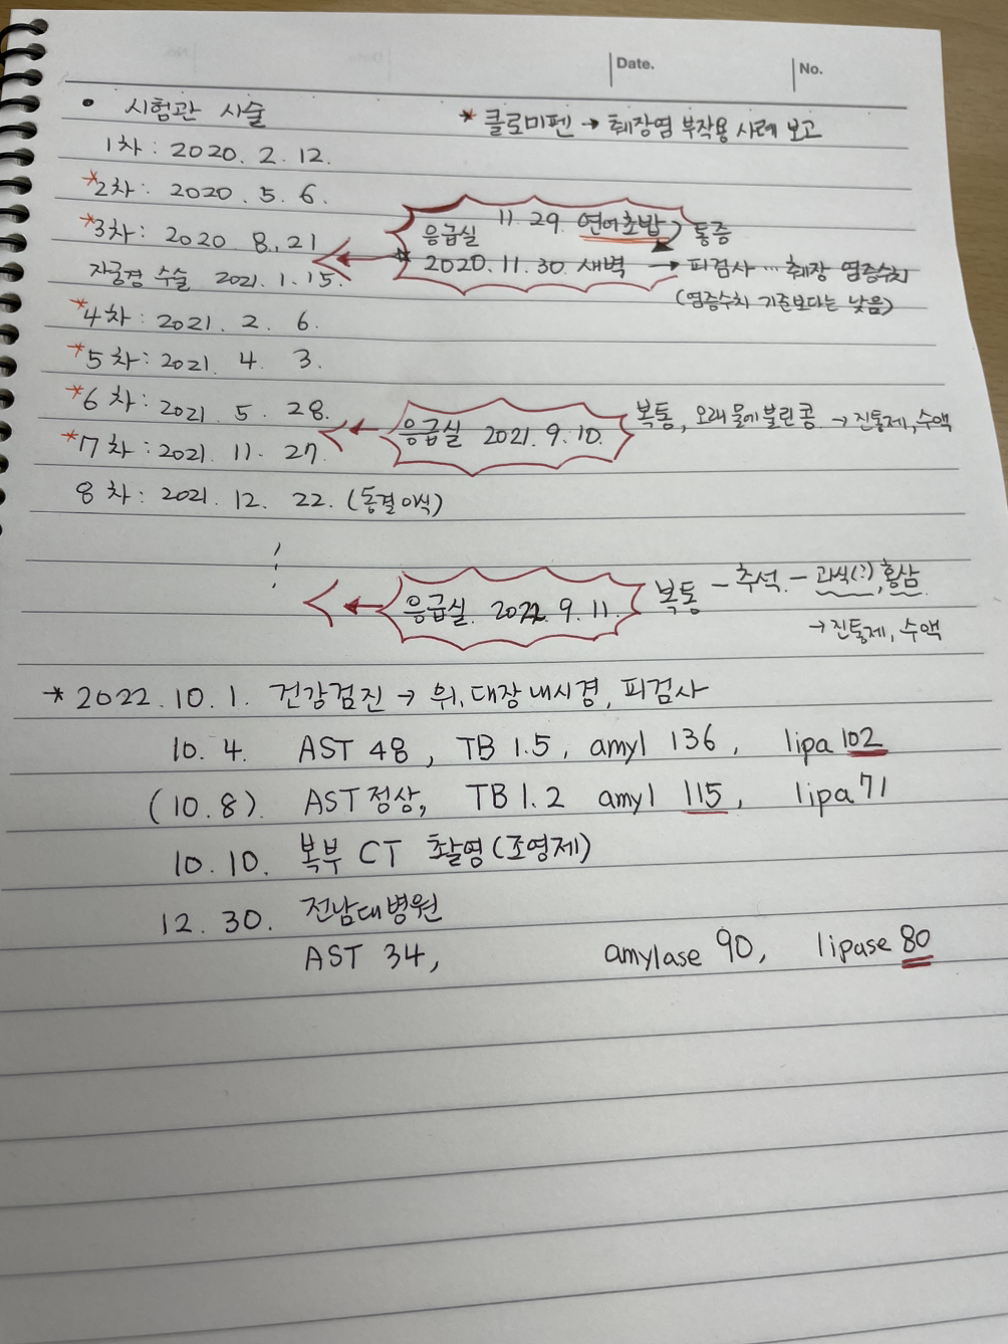 Date. No.
• 시험관 시술 * 클로미펜 → 췌장염 부작용 사례 보고
1차 : 2020. 2. 12.
*2차 : 2020. 5. 6.
11. 29. 연어초밥 통증
*3차 : 2020 8. 21 응급실
자궁경 수술 2021. 1. 15. * 2020. 11. 30. 새벽 → 피검사 … 췌장 염증수치
(염증수치 기준보다는 낮음)
*4차 : 2021. 2. 6.
*5차 : 2021. 4. 3.
*6차 : 2021. 5. 28. 응급실 2021. 9. 10. 복통, 오래 물에 불린 콩 → 진통제, 수액
*7차 : 2021. 11. 27.
8차 : 2021. 12. 22. (동결이식)
응급실. 2022. 9. 11. 복통 - 추석. - 과식(?), 홍삼.
→ 진통제, 수액
* 2022. 10. 1. 건강검진 → 위, 대장 내시경, 피검사
10. 4. AST 48, TB 1.5, amyl 136, lipa 102
(10. 8). AST 정상, TB 1.2 amyl 115, lipa 71
10. 10. 복부 CT 촬영 (조영제)
12. 30. 전남대병원
AST 34, amylase 90, lipase 80